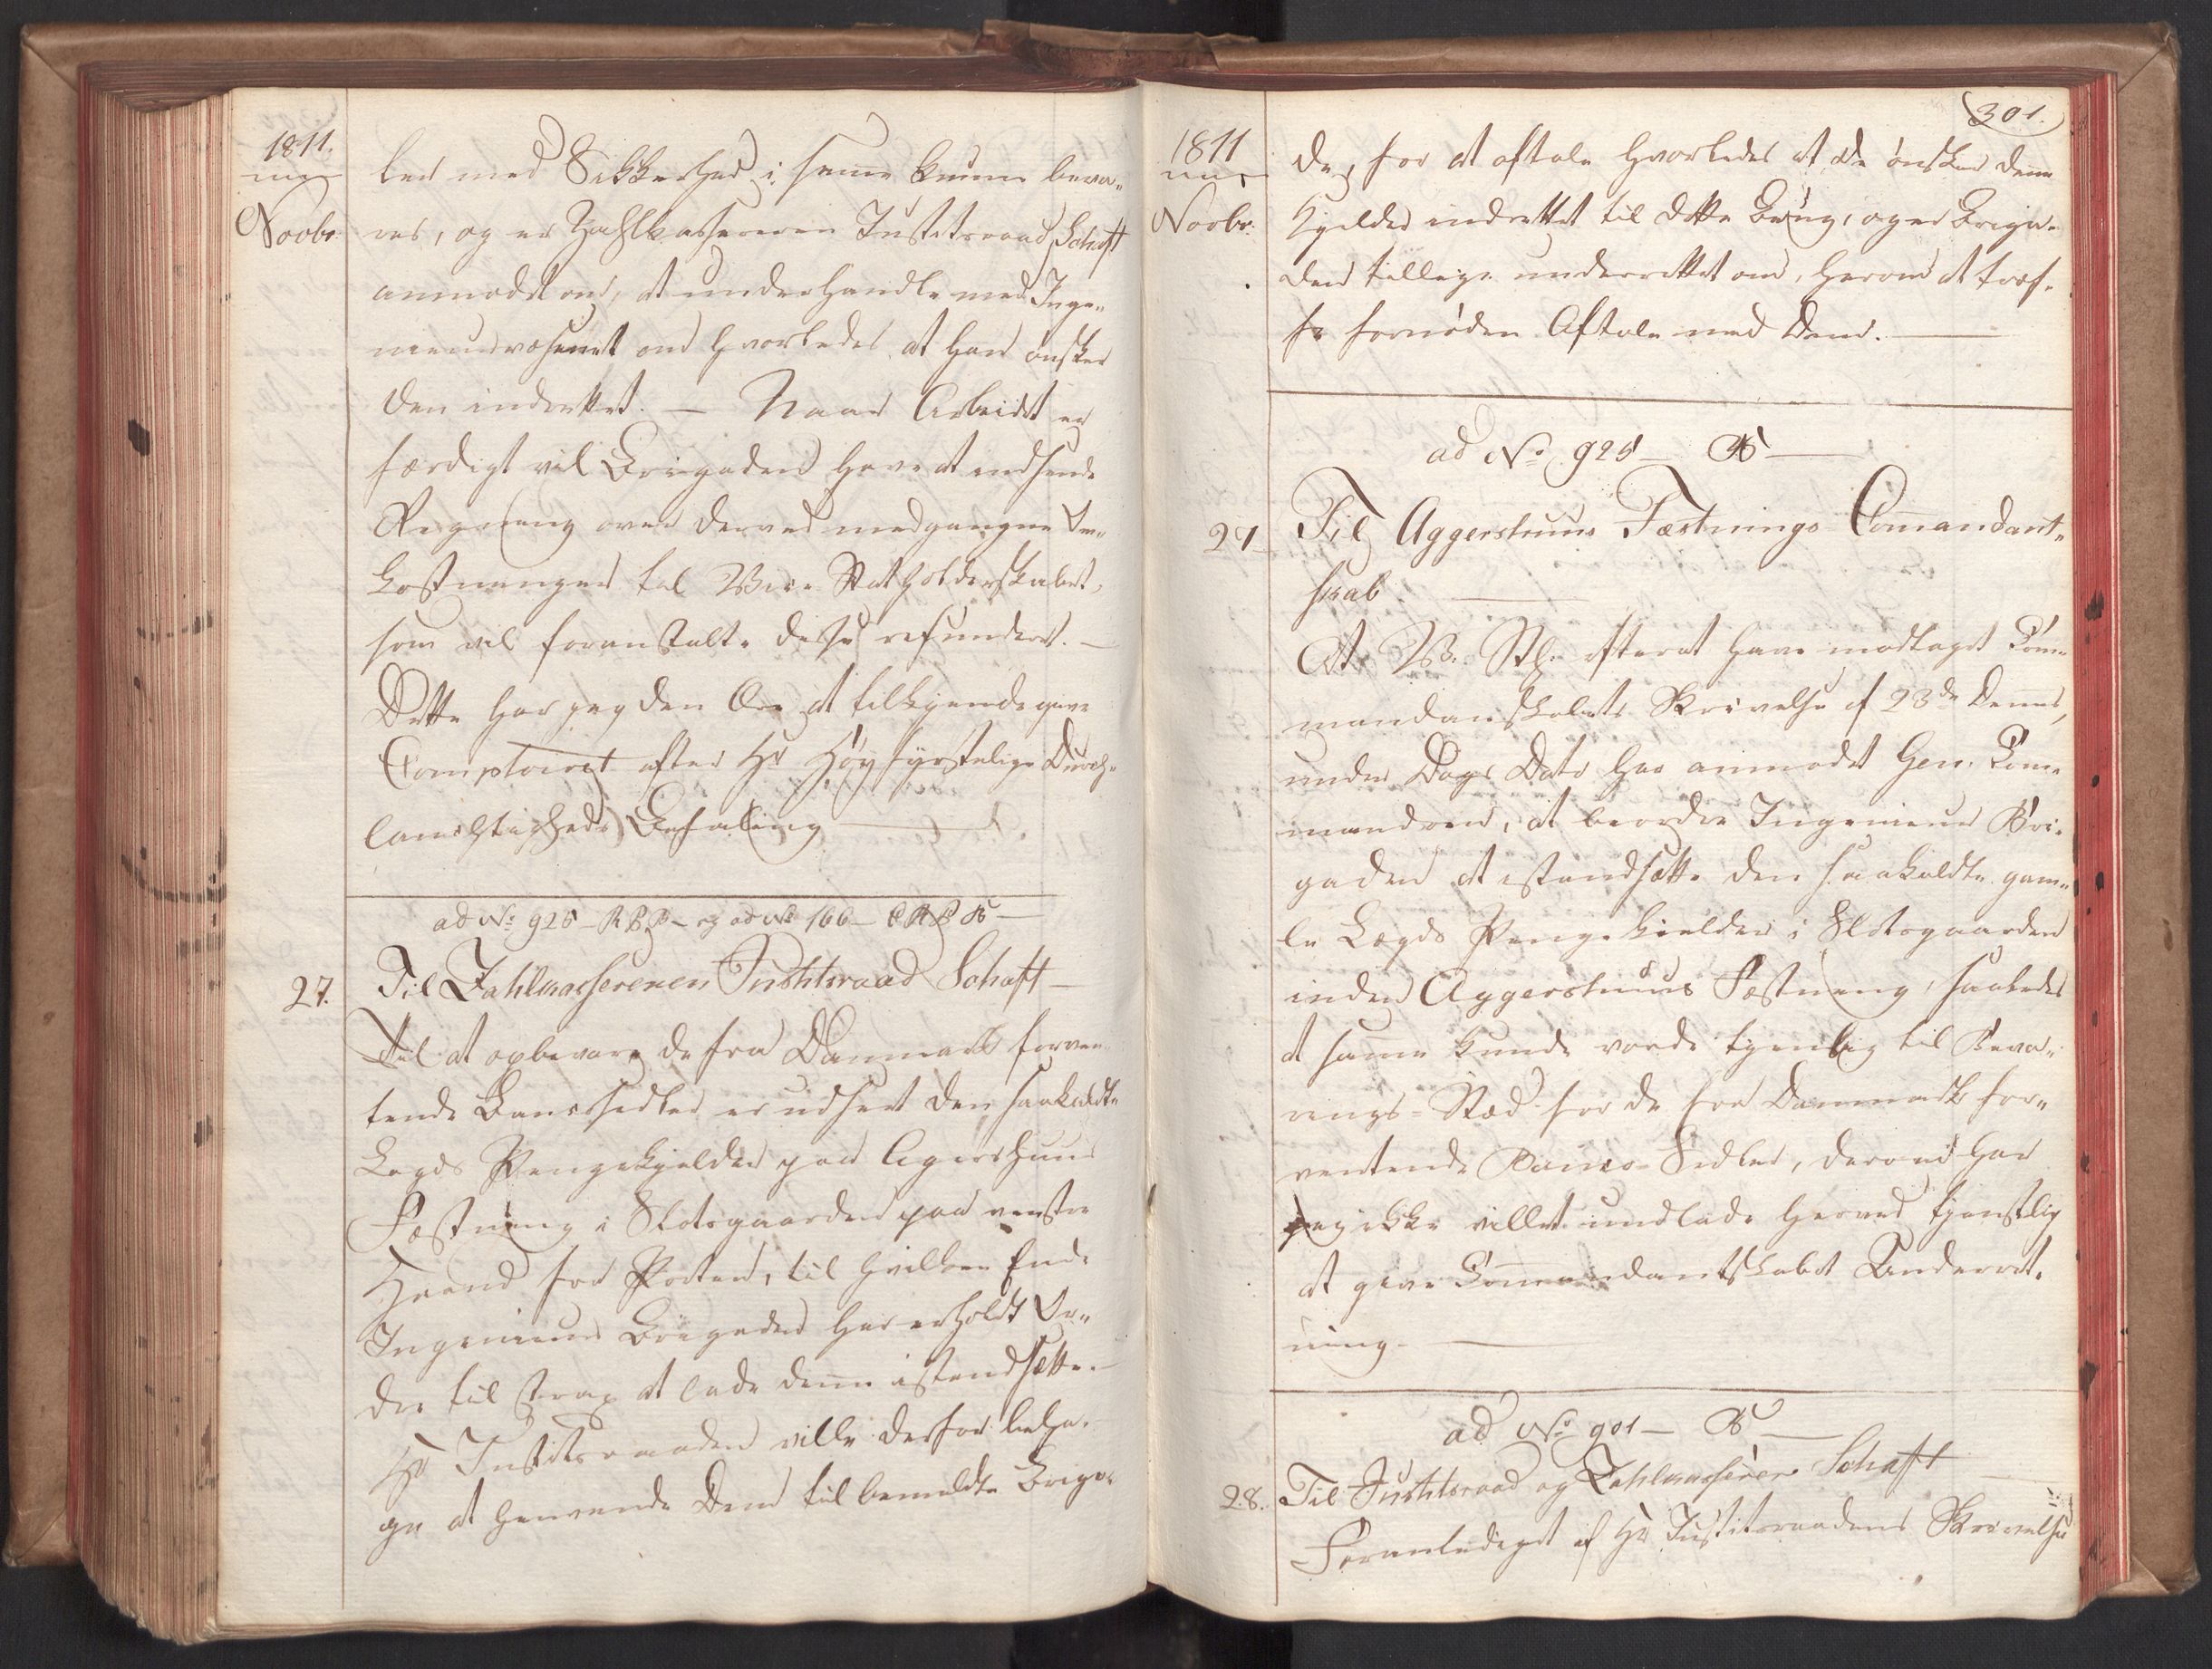 1811.
Novbr.
ler med Sikkerhed i samme kunne beva-
res, og er Zahlkassereren Justitsraad Schaft
anmodet om, at underhandle med Inge-
nieurvæsenet om hvorledes at han ønsker
den indrettet. — Naar Arbeidet er
færdigt vil Brigaden have at indsende
Regning over derved medgangne Om-
kostninger til Vice Statholderskabet,
som vil foranstalte disse refunderet. —
Dette har jeg den Ære at tilkjendegive
Comptoiret efter Hs Høyfyrstelige Durch-
lauchtigheds Befaling
ad No. 925 — og ad No 166 —
27.
Til Zahlkasserenen Justitsraad Schaft —
Til at opbevare de fra Danmark forven-
tende Bancosedler er udseet den saakaldte
Lægds Pengekjelder paa Agershuus
Fæstning i Slotsgaarden paa venstre
Haand for Porten, til hvilken Ende
Ingenieur Brigaden har erholdt Or-
dre til strax at lade denne istandsætte. —
Hr Justitsraaden ville derfor beha-
ge at henvende Dem til bemeldte Briga-
301.
1811
Novbr.
de, for at aftale hvorledes at de ønsker denne
Kjelder indrettet til dette Brug, og er Briga-
den tillige underrettet om, herom at træf-
fe fornøden Aftale med Dem. —
ad No. 925 —
27
Til Aggershuus Fæstnings Commandant-
skab. —
At V. Sth. efterat have modtaget Com-
mandantskabets Skrivelse af 23de Dennes,
under Dags Dato har anmodet Gen. Com-
mandoen, at beordre Ingenieur Bri-
gaden at istandsætte den saakaldte gam-
le Lægds Penge Kielder i Slotsgaarden
inden Aggershuus Fæstning, saaledes
at samme kunde vorde tjenlig til Beva-
rings-Stæd for de fra Danmark for-
ventende Banco-Sedler, derom har
jeg ikke villet undlade herved tjenstlig
at give Commandantskabet Underret-
ning. —
ad No. 901 —
28.
Til Justitsraad og Zahlkasserer Schafft
Foranlediget af Hr Justitsraadens Skrivelse